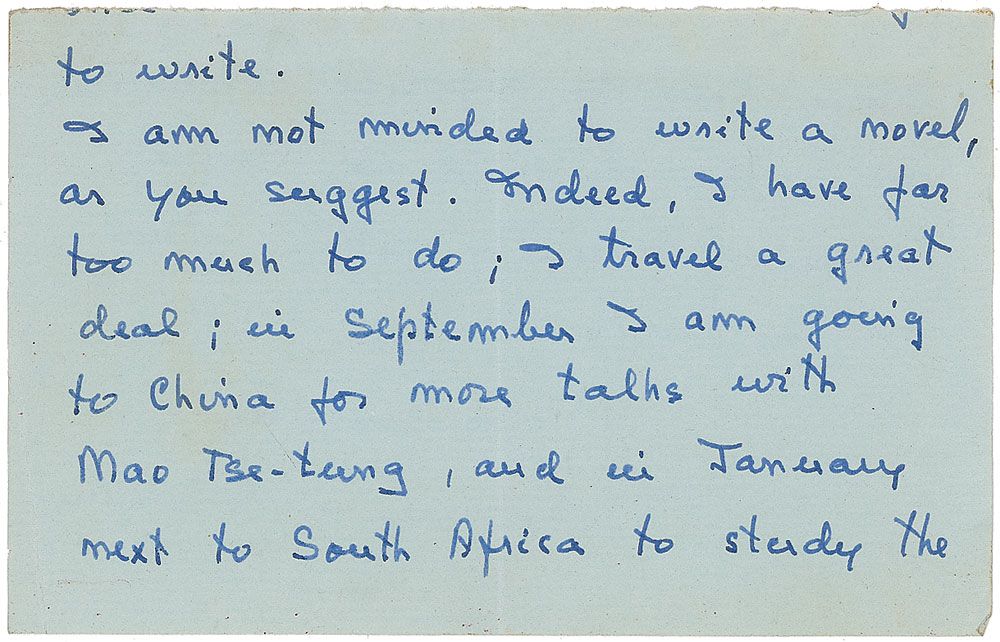 to write.
I am not minded to write a novel,
as you suggest. Indeed, I have far
too much to do; I travel a great
deal; in September I am going
to China for more talks with
Mao Tse-tung, and in January
next to South Africa to study the